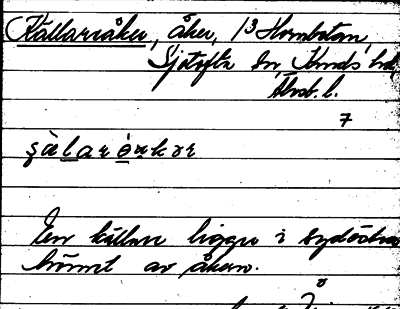 Källaråker, åker, 13 Hornbotan,
Sjotofta sn, Kinds hd,
Älvsb. l.
7
En källare ligger i sydöstra
hörnet av åkern.